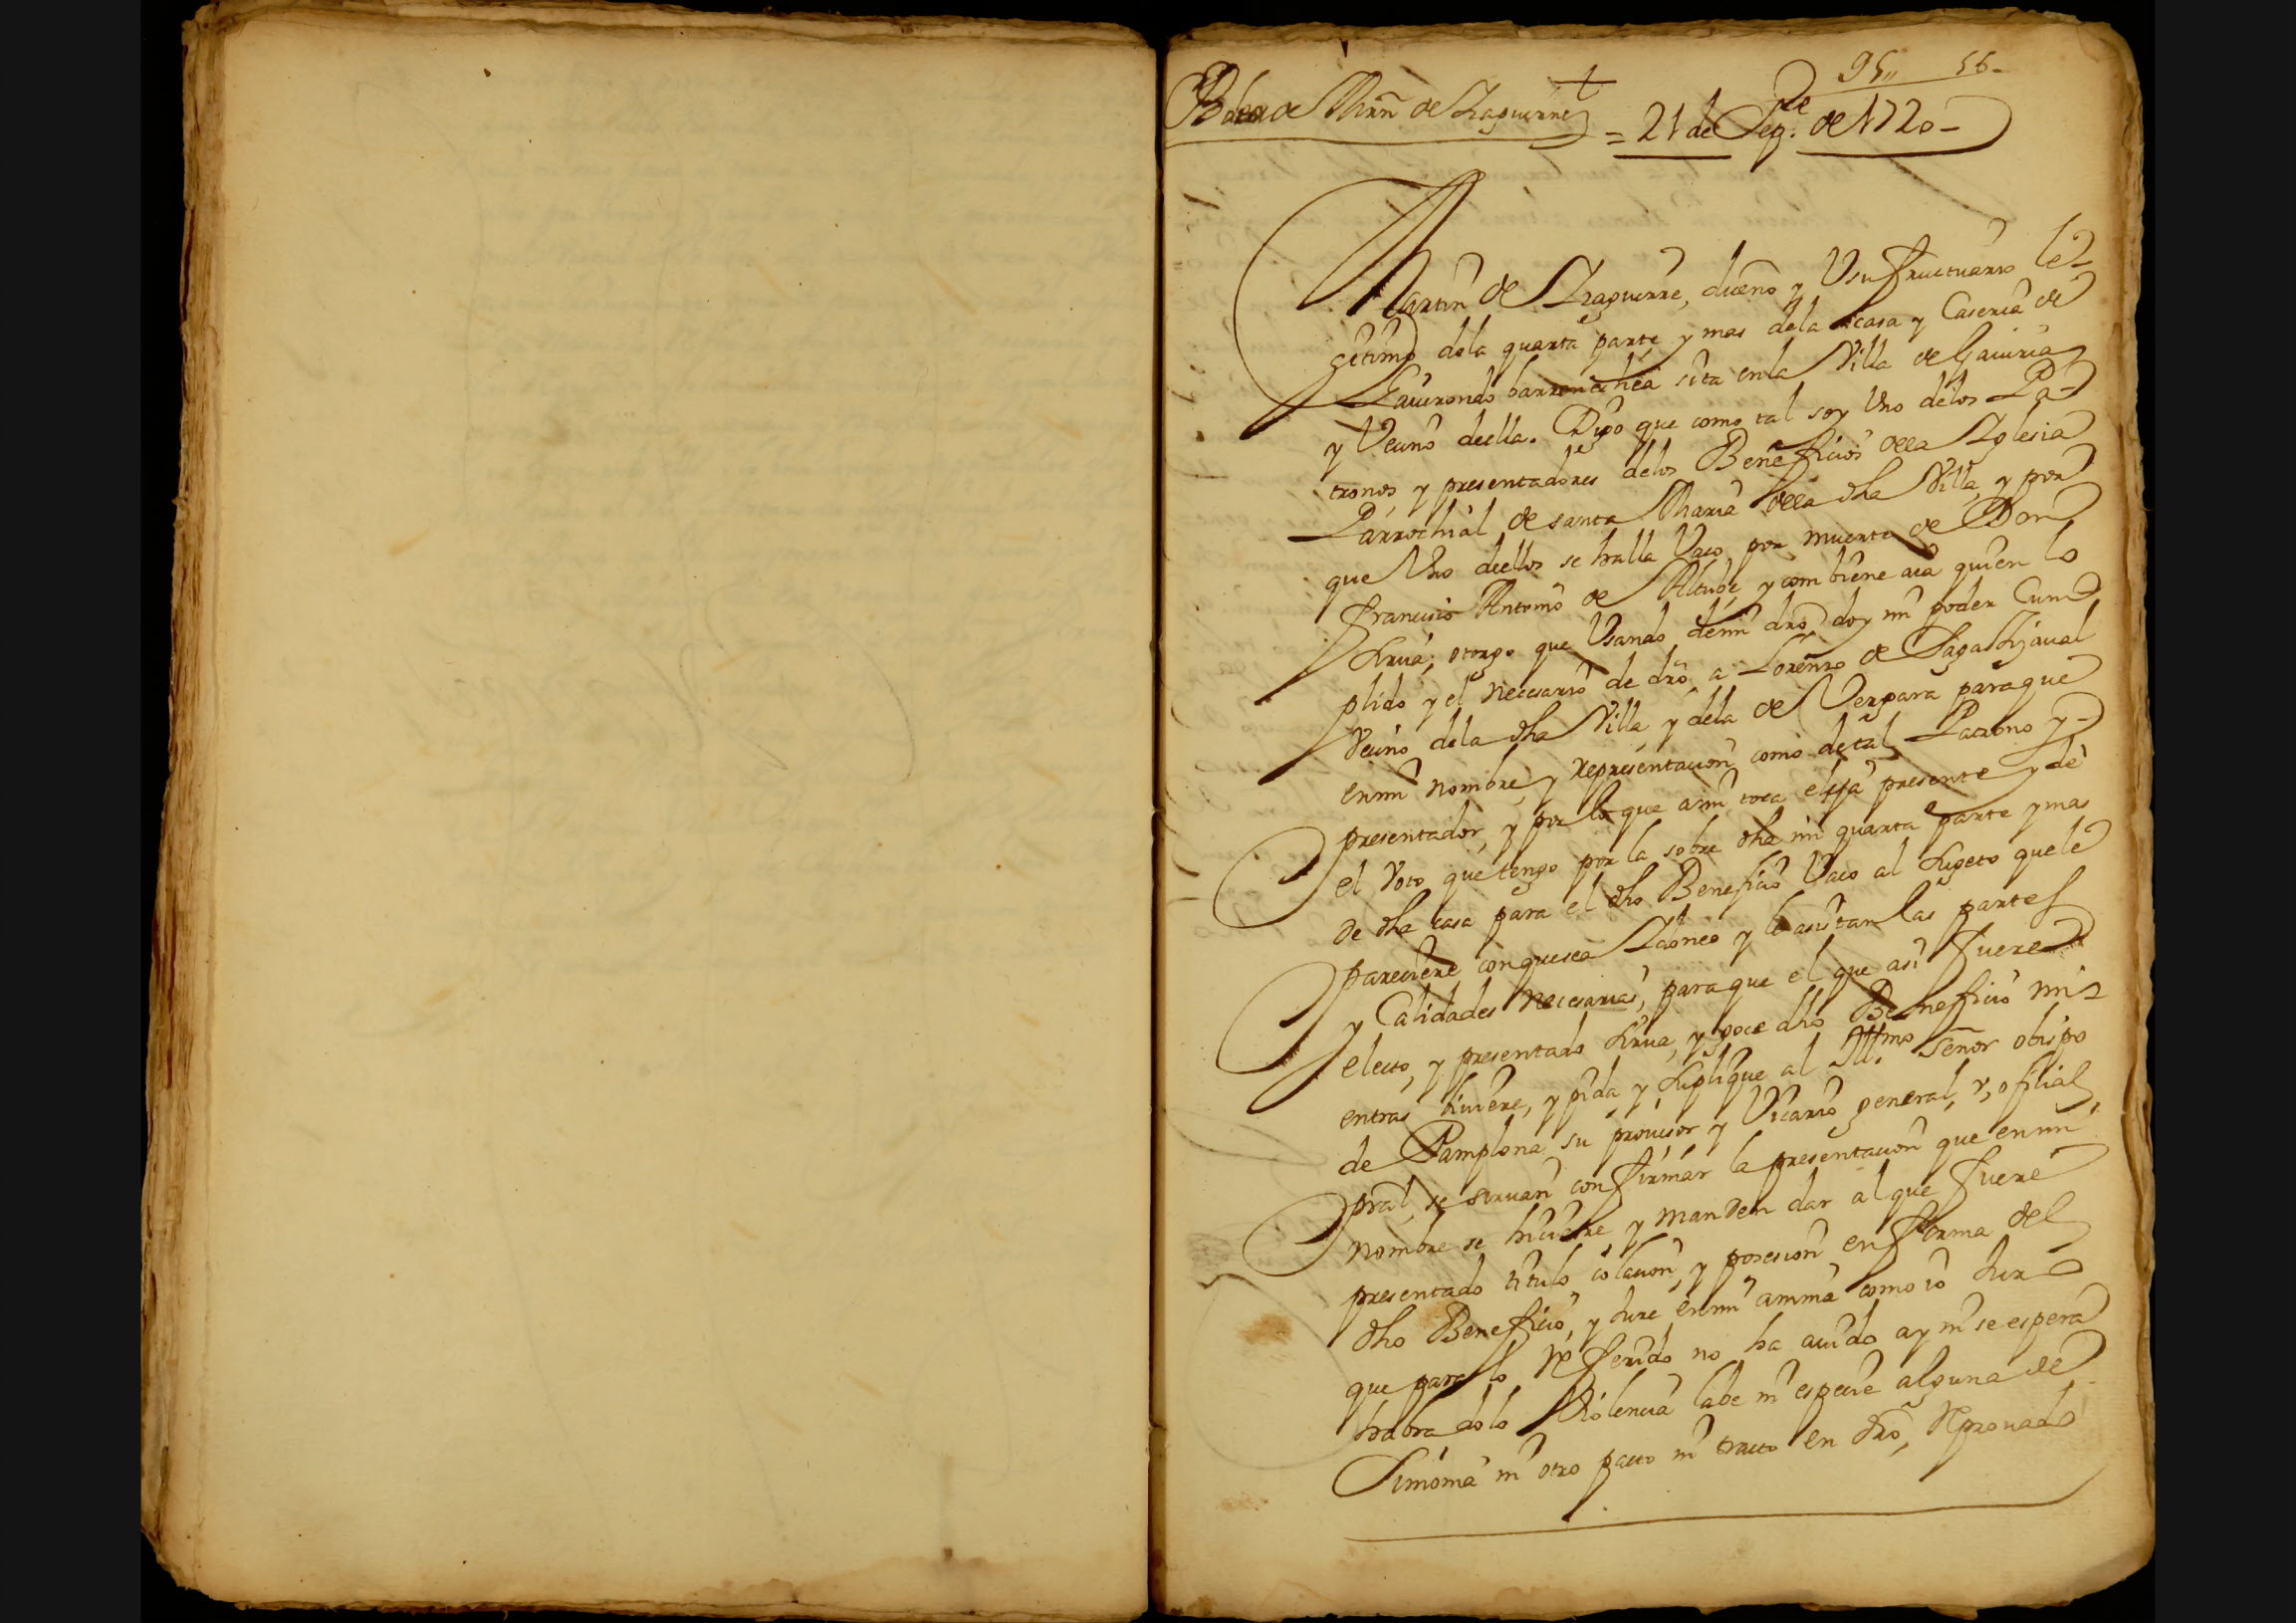 95,, 56-
Poder de Mrñ de Izaguirre
= 21 de Sepe. de 1720-
Martin de Izaguirre, dueño y Usufructuario le-
gitimo dela quarta parte y mas dela casa y Caseria de
Laurondo barrenechea sita enla Villa de Gauiria
y Vecino deella. Digo que como tal soy Uno delos Pa-
tronos y presentadores delos Beneficios dela Iglesia
Parrochial de santa Maria dela dha Villa, y por
que Uno dellos se halla Vaco por muerte de Don
francisco Antonio de Altube, y combiene aia quien lo
sirua, otorgo que Usando demi dro doy mi poder Cum-
plido y el necesario de dro a Lorenzo de Sagastizaual
Vecino dela dha Villa y dela de Vergara paraque
enmi nombre, y representacion como detal Patrono y-
presentador, y por lo que ami toca elija presente y dè
el Voto que tengo por la sobre dha mi quarta parte y mas
de dha casa para el dho Beneficio Vaco al sugeto quele
pareciere conquesea Idoneo y le asistan las partes
y Calidades necesarias, paraque el que asi fuere
electo, y presentado sirua, y goce dho Beneficio mi-
entras viuiere, y pida y suplique al Illmo señor obispo
de Pamplona su prouisor y Vicario general, y, ofizial
pral, se siruan confirmar la presentacion que enmi
nombre se hiciere, y manden dar al que fuere
presentado titulo, colacion, y posesion en forma del
dho Beneficio, y Jure enmi anima como io Juro
que para lo referido no ha auido ay ni se espera
habra dolo Violencia labe ni especie alguna de
Simonia ni otro pacto ni tracto en dro, reprouado